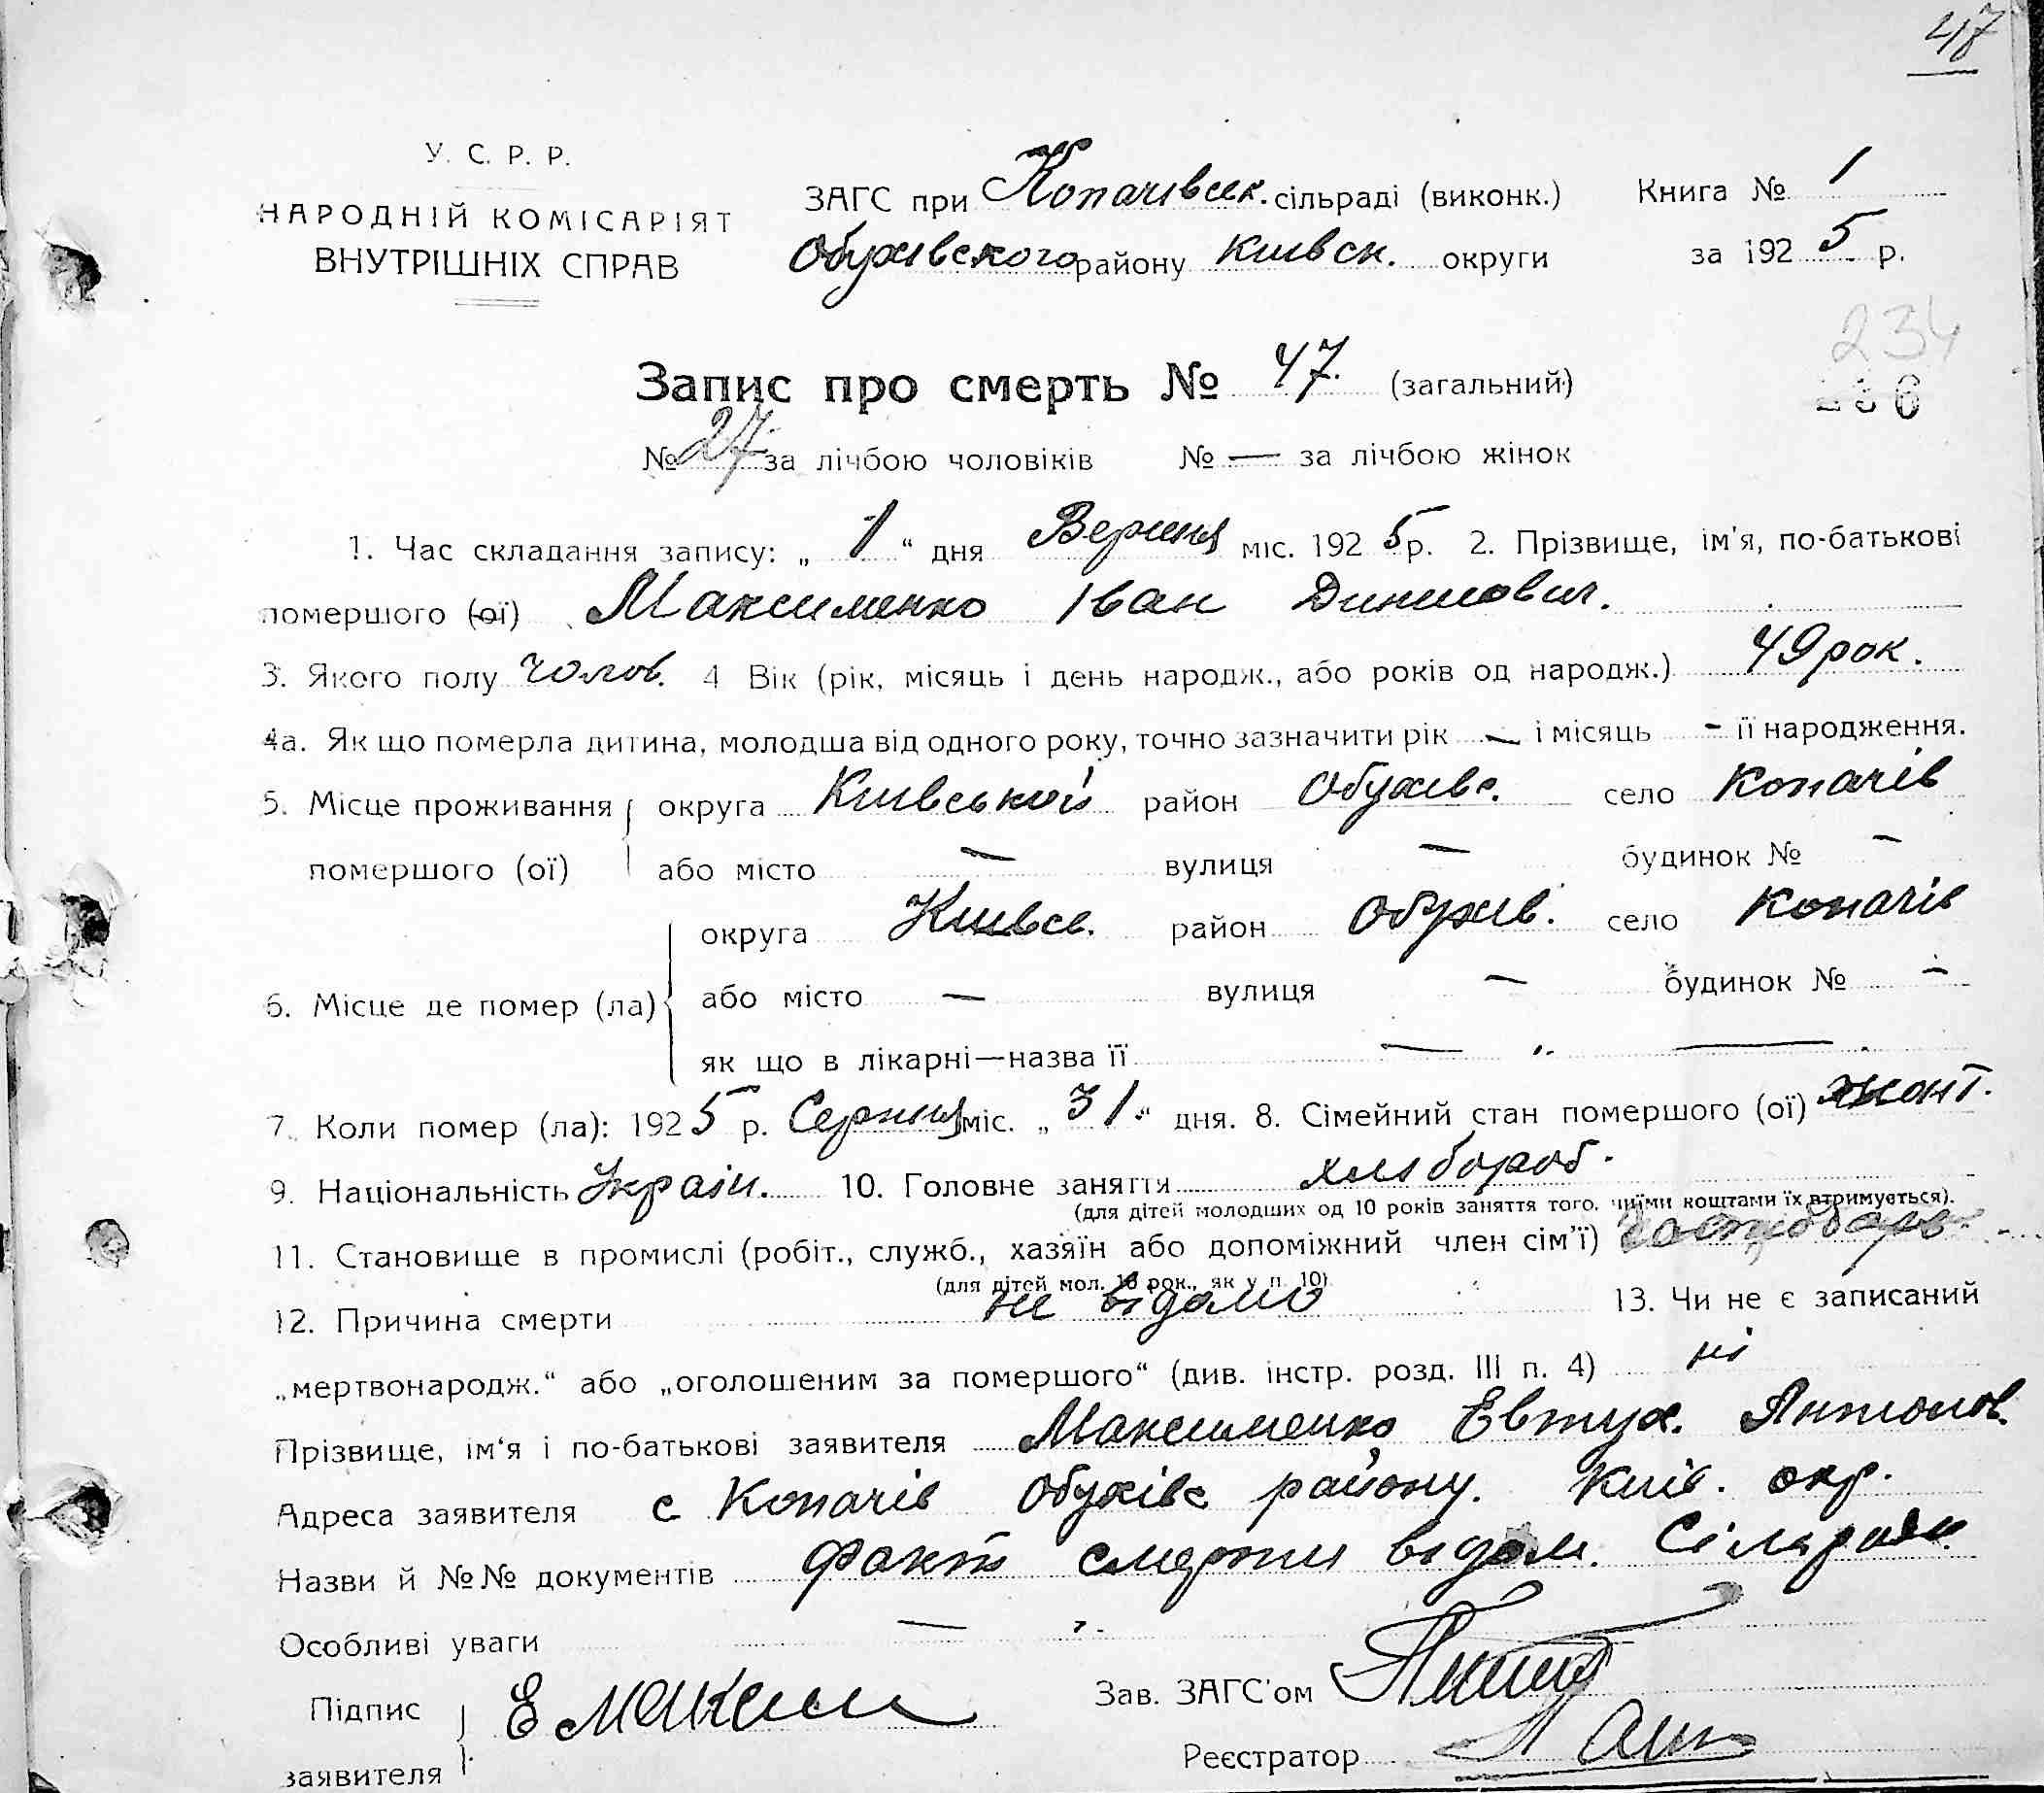 47
У. С. Р. Р.
НАРОДНІЙ КОМІСАРІЯТ
ВНУТРІШНІХ СПРАВ
ЗАГС при Копачівськ. сільраді (виконк.) Книга № 1
Обухівского району Київск. округи за 1925 р.
234
Запис про смерть № 47. (загальний)
№ 27 за лічбою чоловіків № — за лічбою жінок
1. Час складання запису: „ 1 “ дня Верисня міс. 1925 р. 2. Прізвище, ім'я, по-батькові
помершого (ої) Максименко Іван
3. Якого полу чолов. 4 Вік (рік, місяць і день народж., або років од народж.) 49 рок.
4а. Як що померла дитина, молодша від одного року, точно зазначити рік — і місяць - її народження.
5. Місце проживання округа Київської район Обухівс. село Копачів
помершого (ої) або місто — вулиця — будинок № —
округа район Обухів. село Копачів
6. Місце де помер (ла) або місто — вулиця — будинок № —
як що в лікарні—назва її — „ —
7. Коли помер (ла): 1925 р. Серпня міс. „ 31 “ дня. 8. Сімейний стан помершого (ої) жонт.
9. Національність Україн. 10. Головне заняття хлібороб.
(для дітей молодших од 10 років заняття того, чиїми коштами їх втримується).
11. Становище в промислі (робіт., служб., хазяїн або допоміжний член сім'ї)
(для дітей мол. 10 рок., як у п. 10)
12. Причина смерти не відомо 13. Чи не є записаний
„мертвонародж.“ або „оголошеним за помершого“ (див. інстр. розд. III п. 4) ні
Прізвище, ім'я і по-батькові заявителя Максименко Евтух. Антонов.
Адреса заявителя с Копачів Обухівс району. Київ. окр.
Назви й №№ документів Факт смерти відом. Сільради
Особливі уваги —
Підпис Е Максим Зав. ЗАГС'ом
заявителя Реєстратор